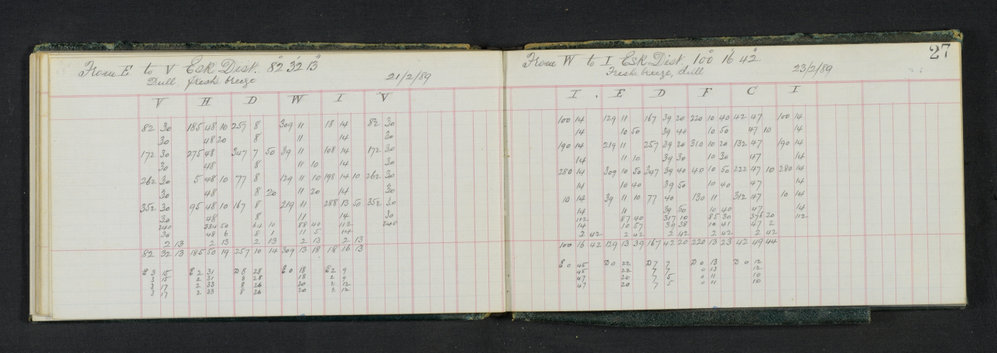 From E to V Esk Dist. 82° 32' 13"
Dull, fresh breeze 21/2/89
V H D W I V
82 30 185 48 10 257 8 309 11 18 14 82 30
30 48 20 8 11 14 30
172 30 275 48 347 7 50 39 11 108 14 172 30
30 48 8 11 10 14 30
262 30 5 48 10 77 8 129 11 10 198 14 10 262 30
30 48 8 20 11 20 14 30
352 30 95 48 10 167 8 219 11 288 13 50 352 30
30 48 8 11 14 30
2 13 2 13 2 13 2 13 2 13
82 32 13 185 50 19 257 10 14 309 13 18 18 16 13
E 3 15 E 2 31 D 8 28 E 0 18 E 2 9
27
From W to I Esk Dist. 100° 16' 42"
Fresh breeze, dull 23/2/89
I . E D F C I
100 14 129 11 167 39 20 220 10 40 42 47 100 14
14 10 50 39 40 10 50 47 10 14
190 14 219 11 257 39 20 310 10 20 132 47 190 14
14 11 10 39 30 10 30 47 14
280 14 309 10 50 347 39 40 40 10 50 222 47 10 280 14
14 10 40 39 50 10 40 47 14
10 14 39 11 10 77 40 130 11 312 47 10 14
14 11 39 50 10 40 47 14
2 42 2 42 2 42 2 42 2 42
100 16 42 129 13 39 167 42 20 220 13 23 42 49 44
E 0 45 D 0 22 D 7 7 D 0 13 D 0 12
45 22 7 7 0 13 12
47 20 7 5 0 11 10
47 20 7 5 0 11 10